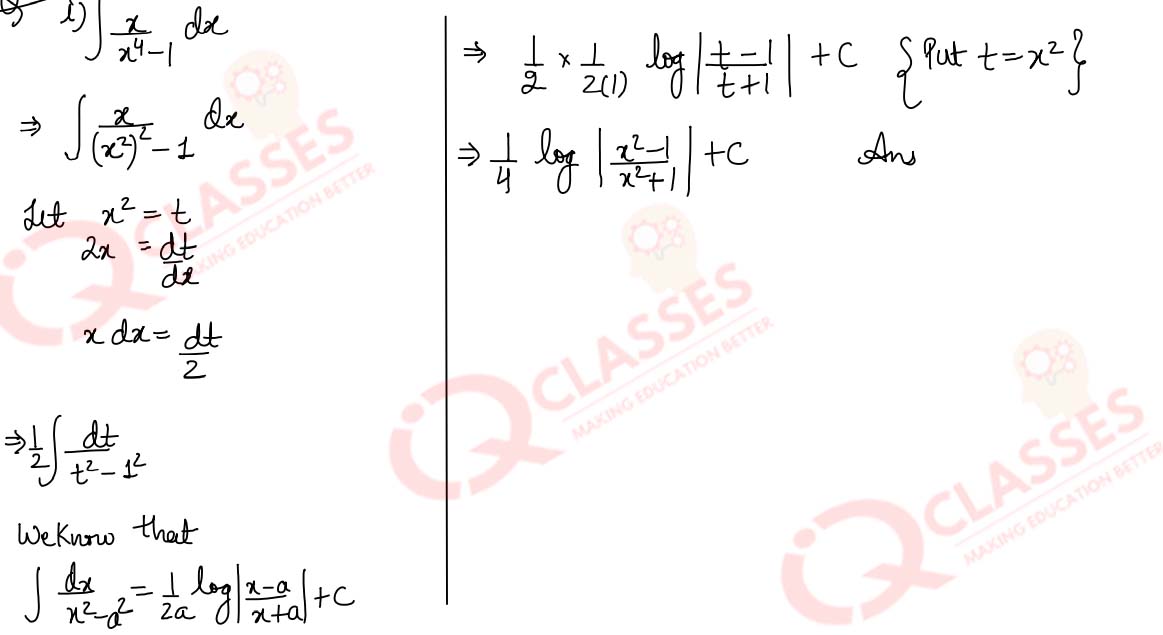 i) ∫ x/(x⁴-1) dx
⇒ ∫ x/((x²)²-1) dx
Let x² = t
2x = dt/dx
x dx = dt/2
⇒ 1/2 ∫ dt/(t²-1²)
We Know that
∫ dx/(x²-a²) = 1/2a log|(x-a)/(x+a)| + C
⇒ 1/2 × 1/2(1) log|(t-1)/(t+1)| + C {Put t = x²}
⇒ 1/4 log |(x²-1)/(x²+1)| + C Ans
CLASSES
MAKING EDUCATION BETTER
CLASSES
MAKING EDUCATION BETTER
CLASSES
MAKING EDUCATION BETTER